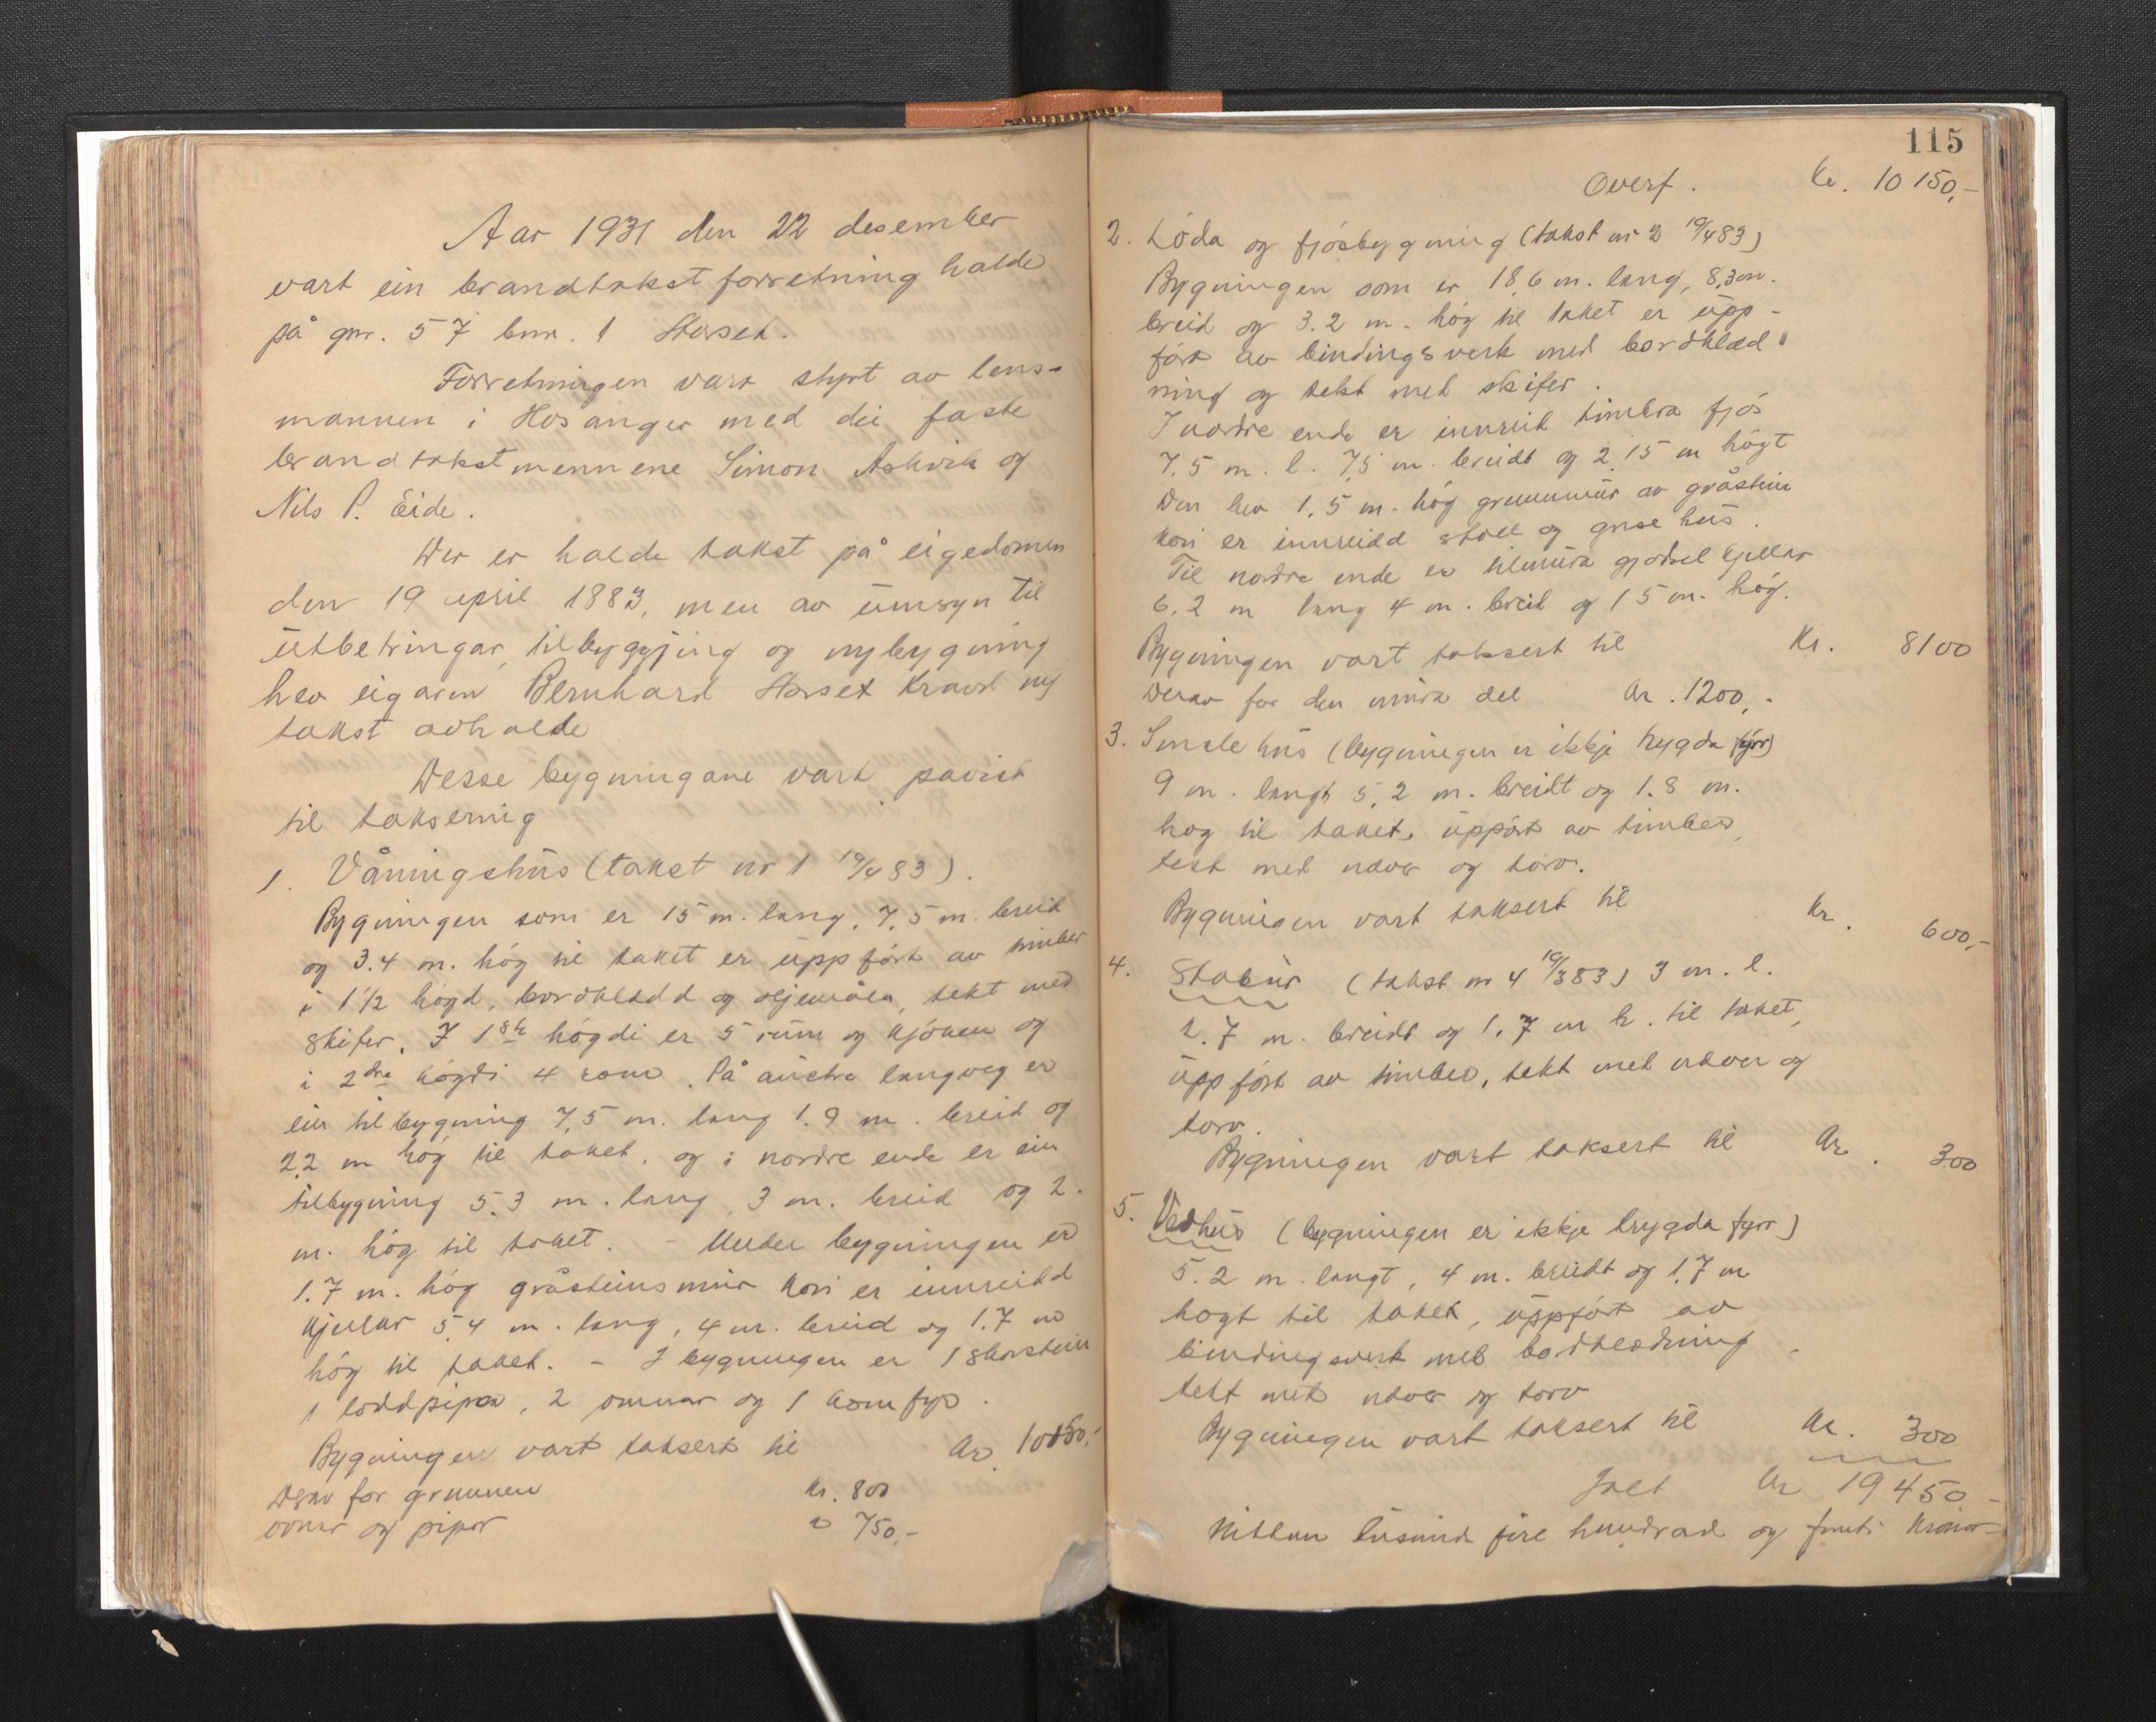 Aar 1931 den 22 desember
vart ein brandtakstforretning halde
på gnr. 57 bnr. 1 Storset.
Forretningen vart styrt av lens-
mannen i Hosanger med dei faste
brandtakstmennene Simon Askvik og
Nils P. Eide.
Der er halde takst på eigedomen
den 19 april 1883, men av umsyn til
utbetringar, tilbyggjing og nybygning
hev eigaren Bernhard Storset kravd ny
takst avhalde
Desse bygningane vart påvist
til taksering
1. Våningshus (takst nr 1 19/4 83).
Bygningen som er 15 m. lang, 7,5 m. breid
og 3.4 m. høg til taket er uppført av timber
i 1 1/2 høgd, bordkledd og oljemåla, tekt med
skifer. I 1ste høgdi er 5 rum og kjøken og
i 2dre høgdi 4 rom. På austre langveg er
ein tilbygning 7,5 m. lang 1.9 m. breid og
2,2 m høg til taket, og i nordre ende er ein
tilbygning 5.3 m. lang, 3 m. breid og 2.
m. høg til taket. - Under bygningen er
1.7 m. høg gråsteinsmur kori er innreidd
kjellar 5,4 m. lang, 4 m. breid og 1.7 m
høg til taket. - I bygningen er 1 skorstein
1 loddpipa, 2 omnar og 1 komfyr.
Bygningen vart taksert til Kr. 10150,-
Derav for grunnen Kr. 800
ovner og piper " 750,-
115
Overf. Kr. 10 150,-
2. Løda og fjøsbygning (takst nr 2 19/4 83)
Bygningen som er 18,6 m. lang, 8,3 m.
breid og 3.2 m. høg til taket er upp-
ført av bindingsverk med bordkled
ning og tekt med skifer.
I nordre ende er innreid timbra fjøs
7.5 m. l. 7,5 m. breidt og 2,15 m høgt
Den hev 1,5 m. høg grunnmur av gråstein
kori er innreidd stall og grise hus.
Til nordre ende er tilmura gjødsel kjellar
6,2 m lang 4 m. breid og 1 5 m. høg.
Bygningen vart taksert til Kr. 8100
Derav for den mura del Kr. 1200,-
3. Smalehus (bygningen er ikkje trygda fyrr)
9 m. langt 5,2 m. breidt og 1.8 m.
høg til taket, uppført av timber,
tekt med never og torv.
Bygningen vart taksert til Kr. 600,-
4. Stabur (takst nr 4 19/3 83) 3 m. l.
2.7 m. breidt og 1.7 m h. til taket,
uppført av timber, tekt med never og
torv.
Bygningen vart taksert til Kr. 300
5. Vedhus (bygningen er ikkje trygda fyrr)
5.2 m. langt, 4 m. breidt og 1,7 m
høgt til taket, uppført av
bindingsverk med bordkledning
tekt med never og torv
Bygningen vart taksert til Kr. 300
Ialt Kr 19 450,-
Nittan tusund fire hundrad og femti Kronor